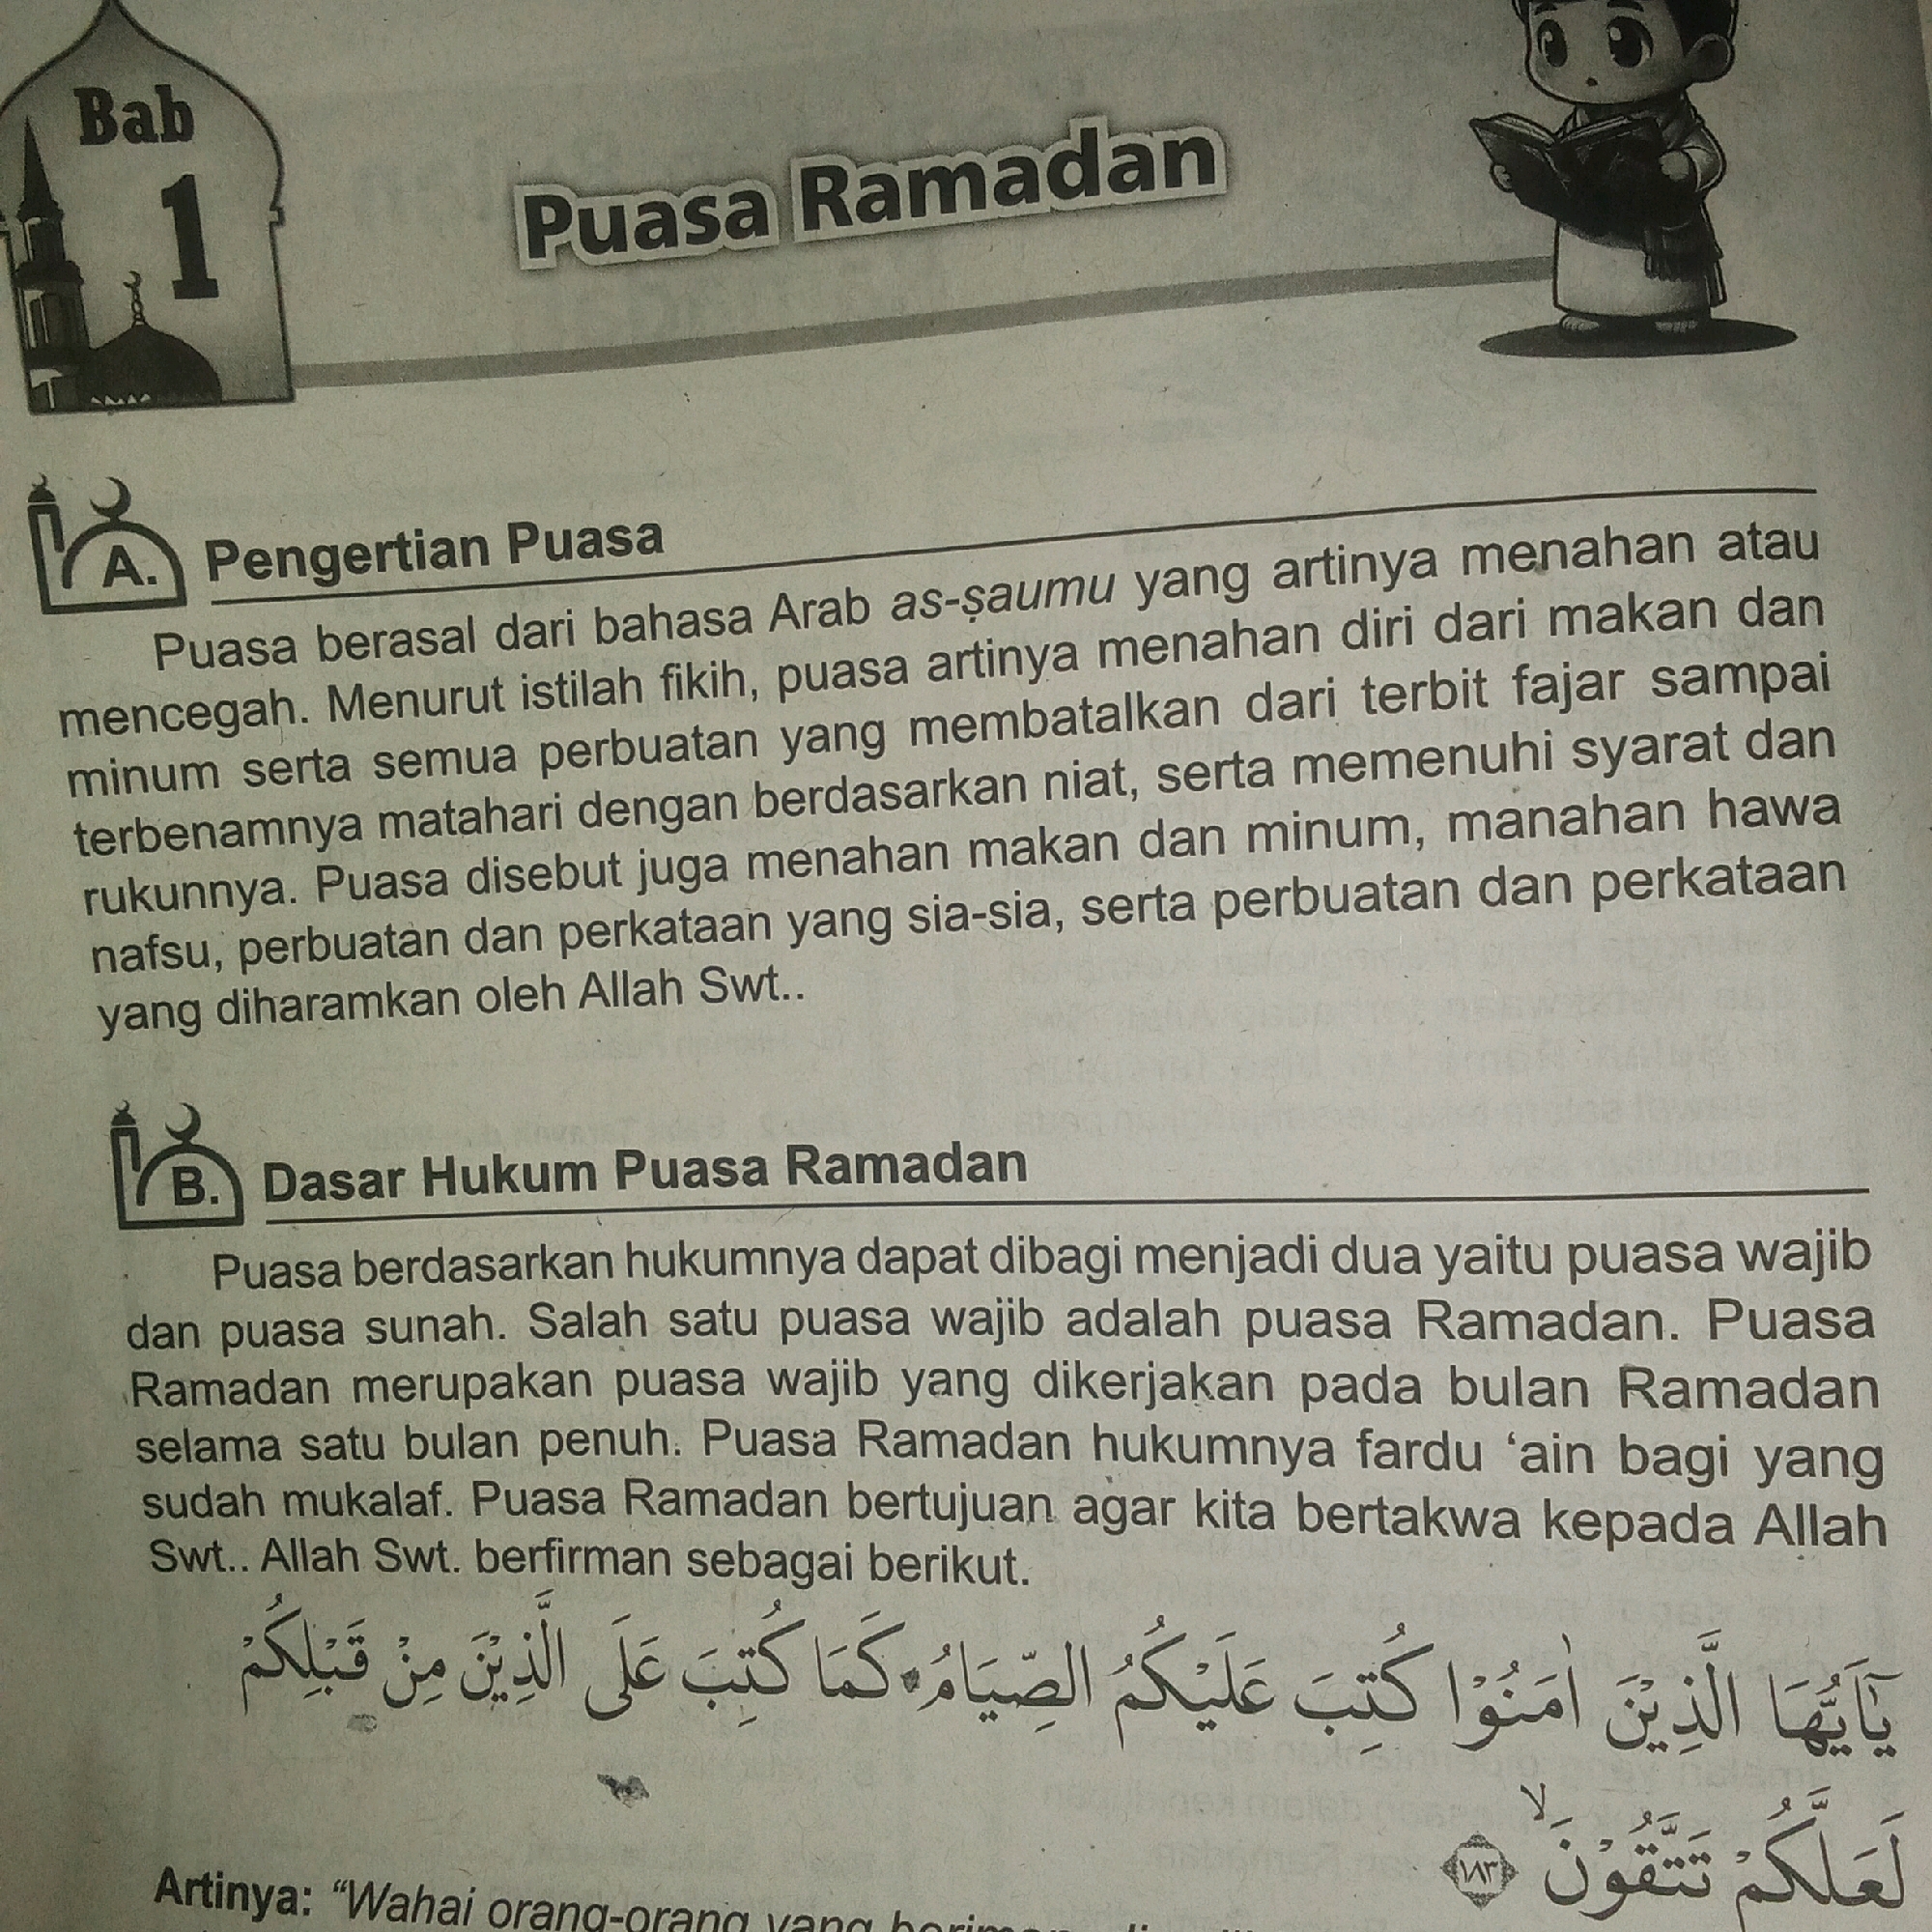 Bab
1
Puasa Ramadan
A. Pengertian Puasa
Puasa berasal dari bahasa Arab as-ṣaumu yang artinya menahan atau
mencegah. Menurut istilah fikih, puasa artinya menahan diri dari makan dan
minum serta semua perbuatan yang membatalkan dari terbit fajar sampai
terbenamnya matahari dengan berdasarkan niat, serta memenuhi syarat dan
rukunnya. Puasa disebut juga menahan makan dan minum, manahan hawa
nafsu, perbuatan dan perkataan yang sia-sia, serta perbuatan dan perkataan
yang diharamkan oleh Allah Swt..
B. Dasar Hukum Puasa Ramadan
Puasa berdasarkan hukumnya dapat dibagi menjadi dua yaitu puasa wajib
dan puasa sunah. Salah satu puasa wajib adalah puasa Ramadan. Puasa
Ramadan merupakan puasa wajib yang dikerjakan pada bulan Ramadan
selama satu bulan penuh. Puasa Ramadan hukumnya fardu ‘ain bagi yang
sudah mukalaf. Puasa Ramadan bertujuan agar kita bertakwa kepada Allah
Swt.. Allah Swt. berfirman sebagai berikut.
يٰٓاَيُّهَا الَّذِيْنَ اٰمَنُوْا كُتِبَ عَلَيْكُمُ الصِّيَامُ كَمَا كُتِبَ عَلَى الَّذِيْنَ مِنْ قَبْلِكُمْ
لَعَلَّكُمْ تَتَّقُوْنَۙ ١٨٣
Artinya: “Wahai orang-orang yang